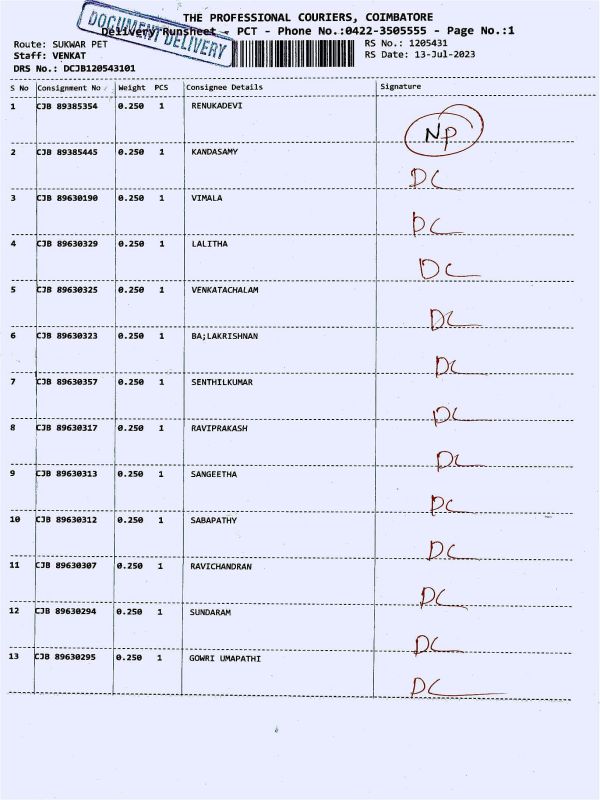 THE PROFESSIONAL COURIERS, COIMBATORE
DOCUMENT DELIVERY
Delivery Runsheet - PCT - Phone No.:0422-3505555 - Page No.:1
Route: SUKWAR PET RS No.: 1205431
Staff: VENKAT RS Date: 13-Jul-2023
DRS No.: DCJB120543101
S No Consignment No Weight PCS Consignee Details Signature
1 CJB 89385354 0.250 1 RENUKADEVI
NP
2 CJB 89385445 0.250 1 KANDASAMY
DC
3 CJB 89630190 0.250 1 VIMALA
DC
4 CJB 89630329 0.250 1 LALITHA
DC
5 CJB 89630325 0.250 1 VENKATACHALAM
DC
6 CJB 89630323 0.250 1 BA;LAKRISHNAN
DC
7 CJB 89630357 0.250 1 SENTHILKUMAR
DC
8 CJB 89630317 0.250 1 RAVIPRAKASH
DC
9 CJB 89630313 0.250 1 SANGEETHA
DC
10 CJB 89630312 0.250 1 SABAPATHY
DC
11 CJB 89630307 0.250 1 RAVICHANDRAN
DC
12 CJB 89630294 0.250 1 SUNDARAM
DC
13 CJB 89630295 0.250 1 GOWRI UMAPATHI
DC